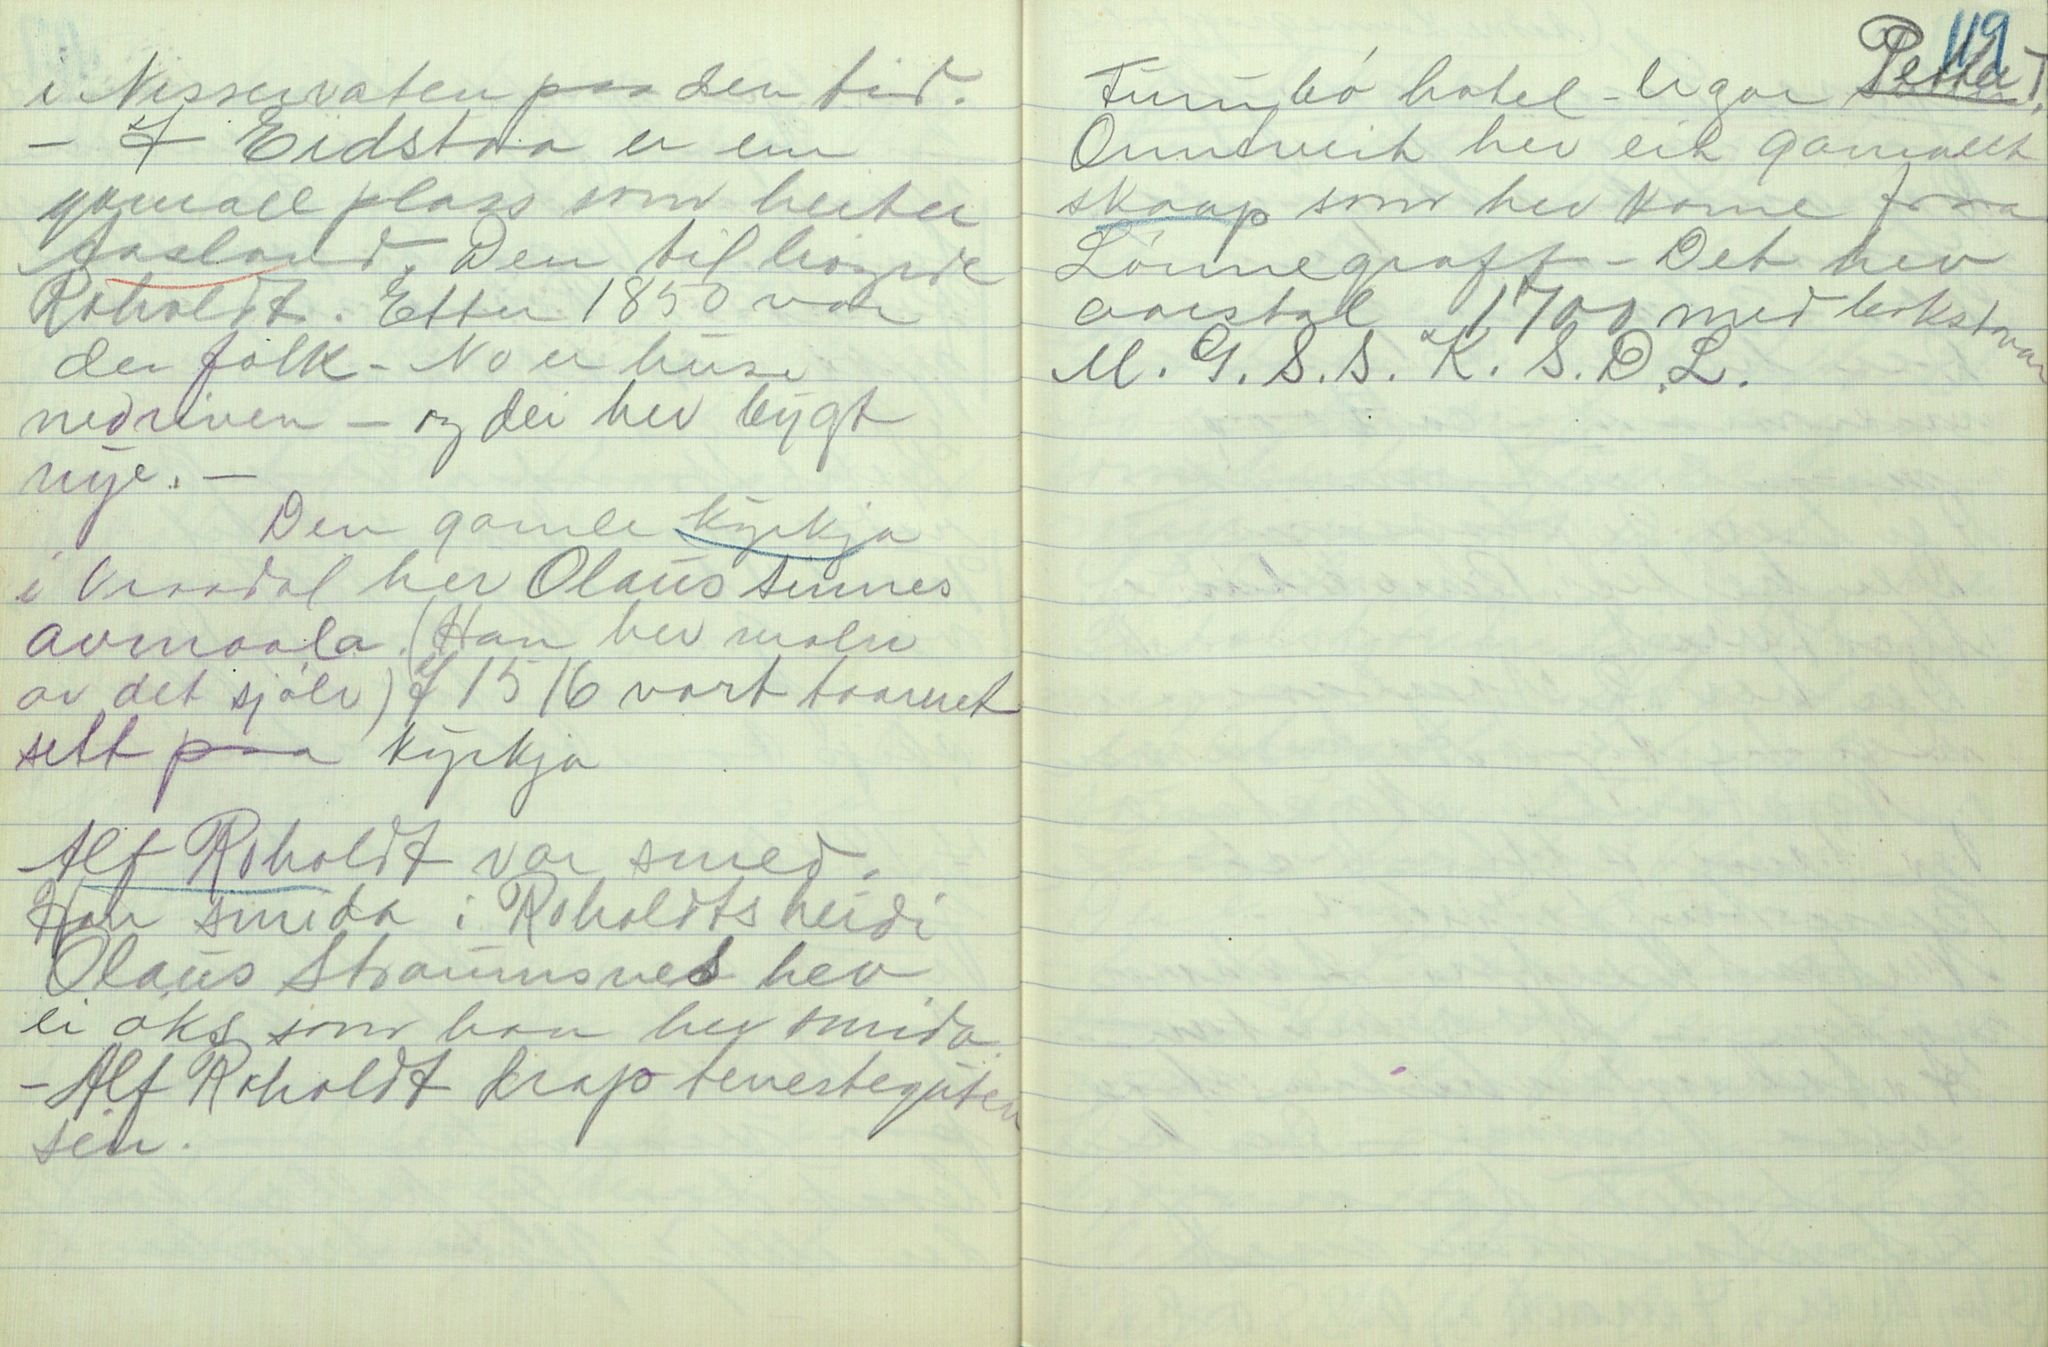 i Nisservaten paa den tid.
- I Eidstaa er ein
gamall plass som heiter
Aasland. Den til høyrde
Roholdt. Etter 1850 var
der folk - No er husi
nedriven - og dei hev bygt
nye. -
Den gamle kyrkja
i Vraadal hev Olaus sinnes
avmaala. (Han hev malu
av det sjølv) I 1516 vart taarnet
sett paa kyrkja
Alf Roholdt var smed.
Han smida i Roholdtsheidi
Olaus Straumsnes hev
ei øks som han hev smida.
- Alf Roholdt drap tenesteguten
sin.
119
Furubø hotel - eigar T.
hev eit gamallt
skaap som hev kome fraa
Lønnegraff - Det hev
aarstal 1700 med bokstavar
M. G. S. S. K. S. D. L.